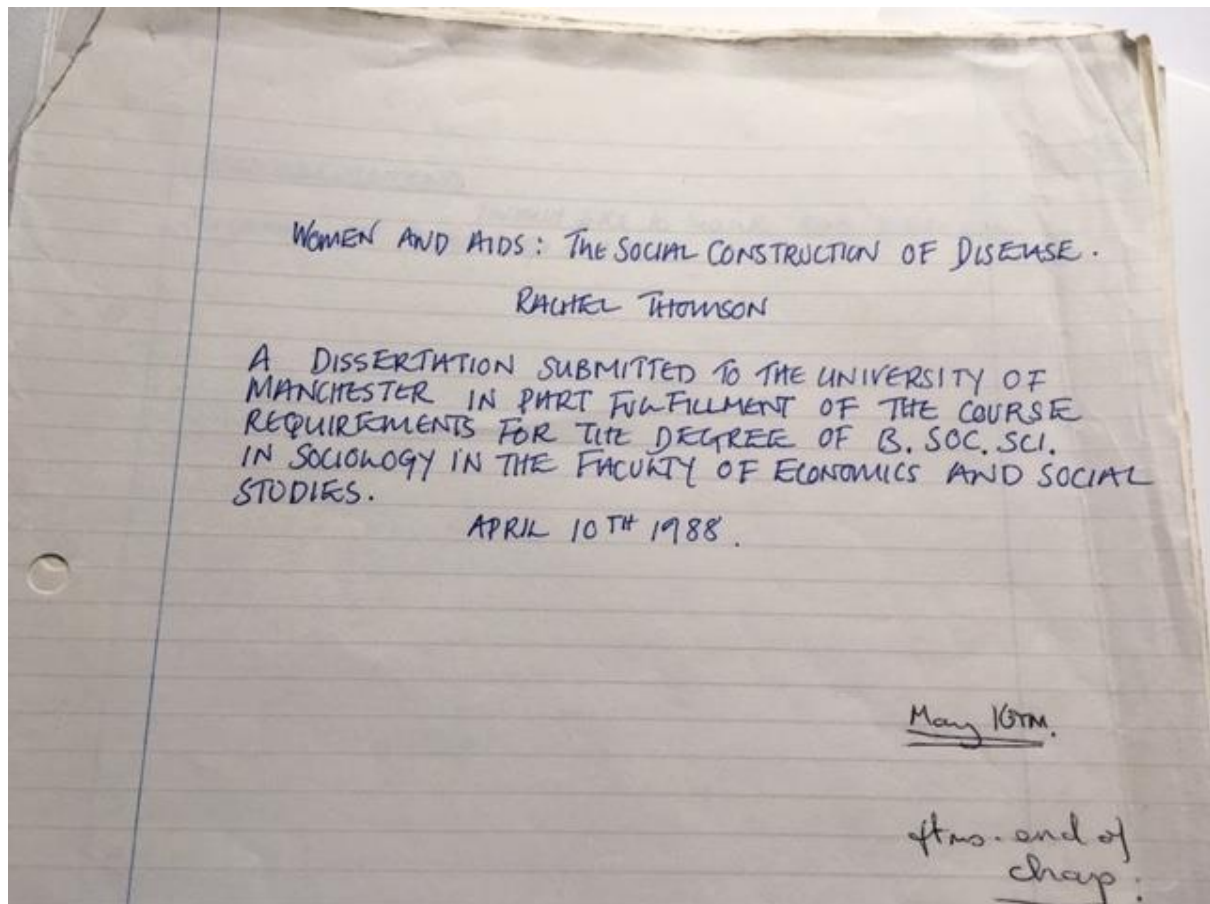 WOMEN AND AIDS: THE SOCIAL CONSTRUCTION OF DISEASE.
RACHEL THOMSON
A DISSERTATION SUBMITTED TO THE UNIVERSITY OF
MANCHESTER IN PART FULFILLMENT OF THE COURSE
REQUIREMENTS FOR THE DEGREE OF B. SOC. SCI.
IN SOCIOLOGY IN THE FACULTY OF ECONOMICS AND SOCIAL
STUDIES.
APRIL 10TH 1988.
May 10TH.
ftns. end of
chap.